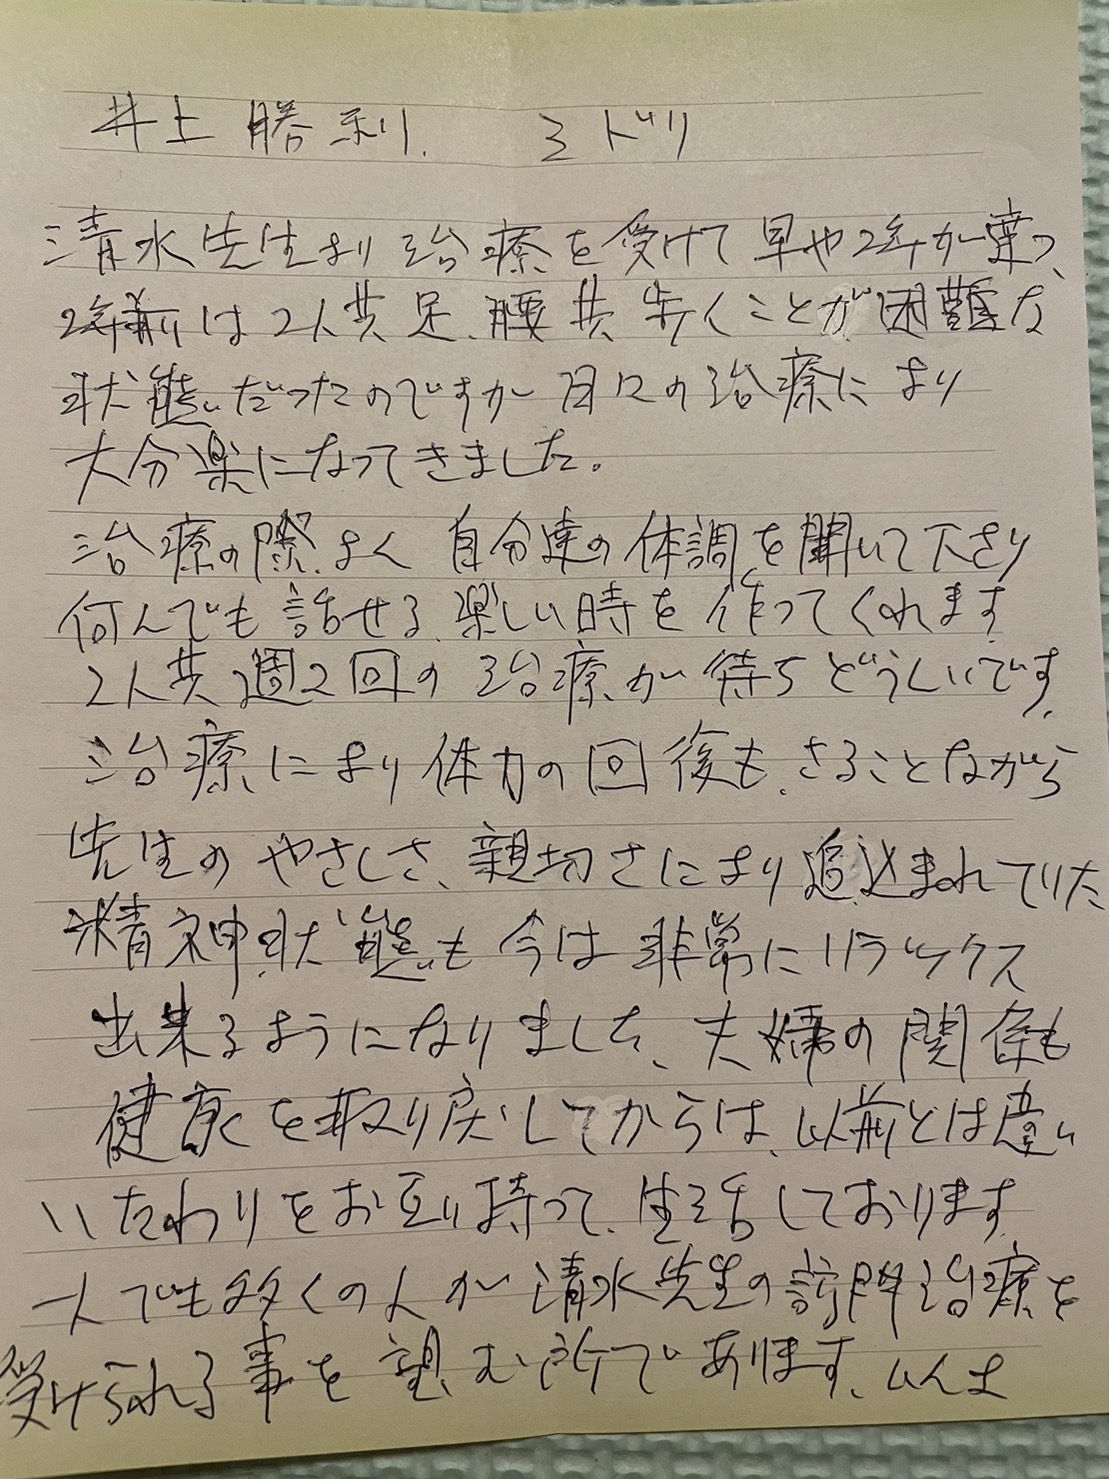 井上勝利. ミドリ
清水先生より治療を受けて早や2年が葉つ、
2年前は2人共足、腰共歩くことが困難な
状態だったのですが日々の治療により
大分楽になってきました。
治療の際、よく自分達の体調を聞いて下さり
何んでも話せる、楽しい時を作ってくれます
2人共週2回の治療が待ちどうしいです、
治療により体力の回後も、さることながら
先生のやさしさ、親切さにより追込まれていた
精神状態も今は非常にリラックス
出来るようになりました、夫婦の関係も
健康を取り戻してからは、以前とは違い
いたわりをお互い持って、生活しております
一人でも多くの人が清水先生の訪問治療を
受けられる事を望む所であります、以上